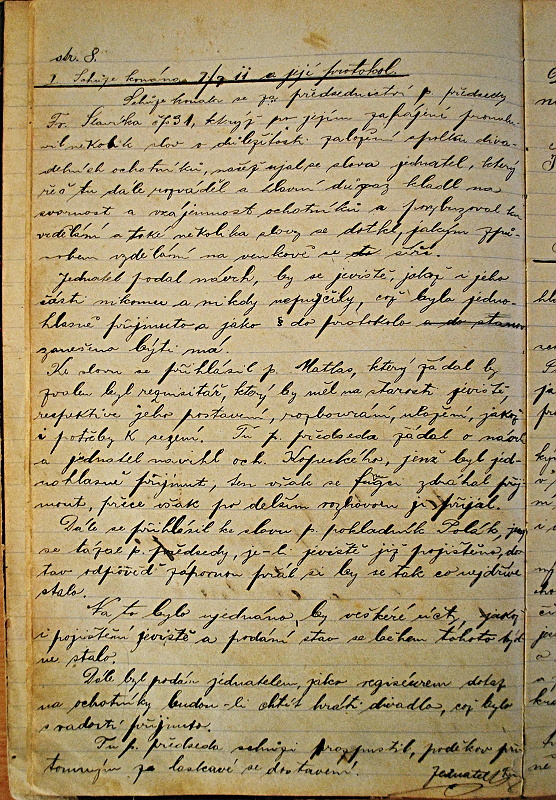 str. 8.
I. Schůze konána 7/7 11 a její protokol.
Schůze konala se za předsednictví p. předsedy
Fr. Slavíka čp 31, který po jejím zahájení promlu-
vil několik slov o důležitosti založení spolku diva-
delních ochotníků, načež ujal se slova jednatel, který
řeč tu dále rozváděl a hlavní důraz kladl na
svornost a vzájemnost ochotníků a povzbuzoval ku
vzdělání a také několika slovy se dotkl, jakým způ-
sobem vzdělání na venkově se šíří.
Jednatel podal návrh, by se jeviště, jakož i jeho
části nikomu a nikdy nepůjčily, což bylo jedno-
hlasně přijmuto a jako § do protokolu a do stanov
zaneseno býti má.
Ke slovu se přihlásil p. Matlas, který žádal by
zvolen byl requisitář, který by měl na starosti jeviště
respektive jeho postavení, rozbourání, uložení, jakož
i potřeby k sezení. Tu p. předseda žádal o návrh
a jednatel navrhl och. Kopeckého, jenž byl jed-
nohlasně přijmut, ten však se funkci zdráhal přij-
mout, přece však po delším rozhovoru ji přijal.
Dále se přihlásil ke slovu p. pokladník Polák, jenž
se tázal p. předsedy, je-li jeviště již pojištěno, do-
stav odpověď zápornou přál si by se tak co nejdříve
stalo.
Na to bylo ujednáno, by veškeré účty, jakož
i pojištění jeviště a podání stav se během tohoto týd-
ne stalo.
Dále byl podán jednatelem, jako regiseurem dotaz
na ochotníky budou-li chtít hráti divadlo, což bylo
s radostí přijmuto.
Tu p. předseda schůzi rozpustil, poděkov pří-
tomným za laskavé se dostavení.
Jednatel